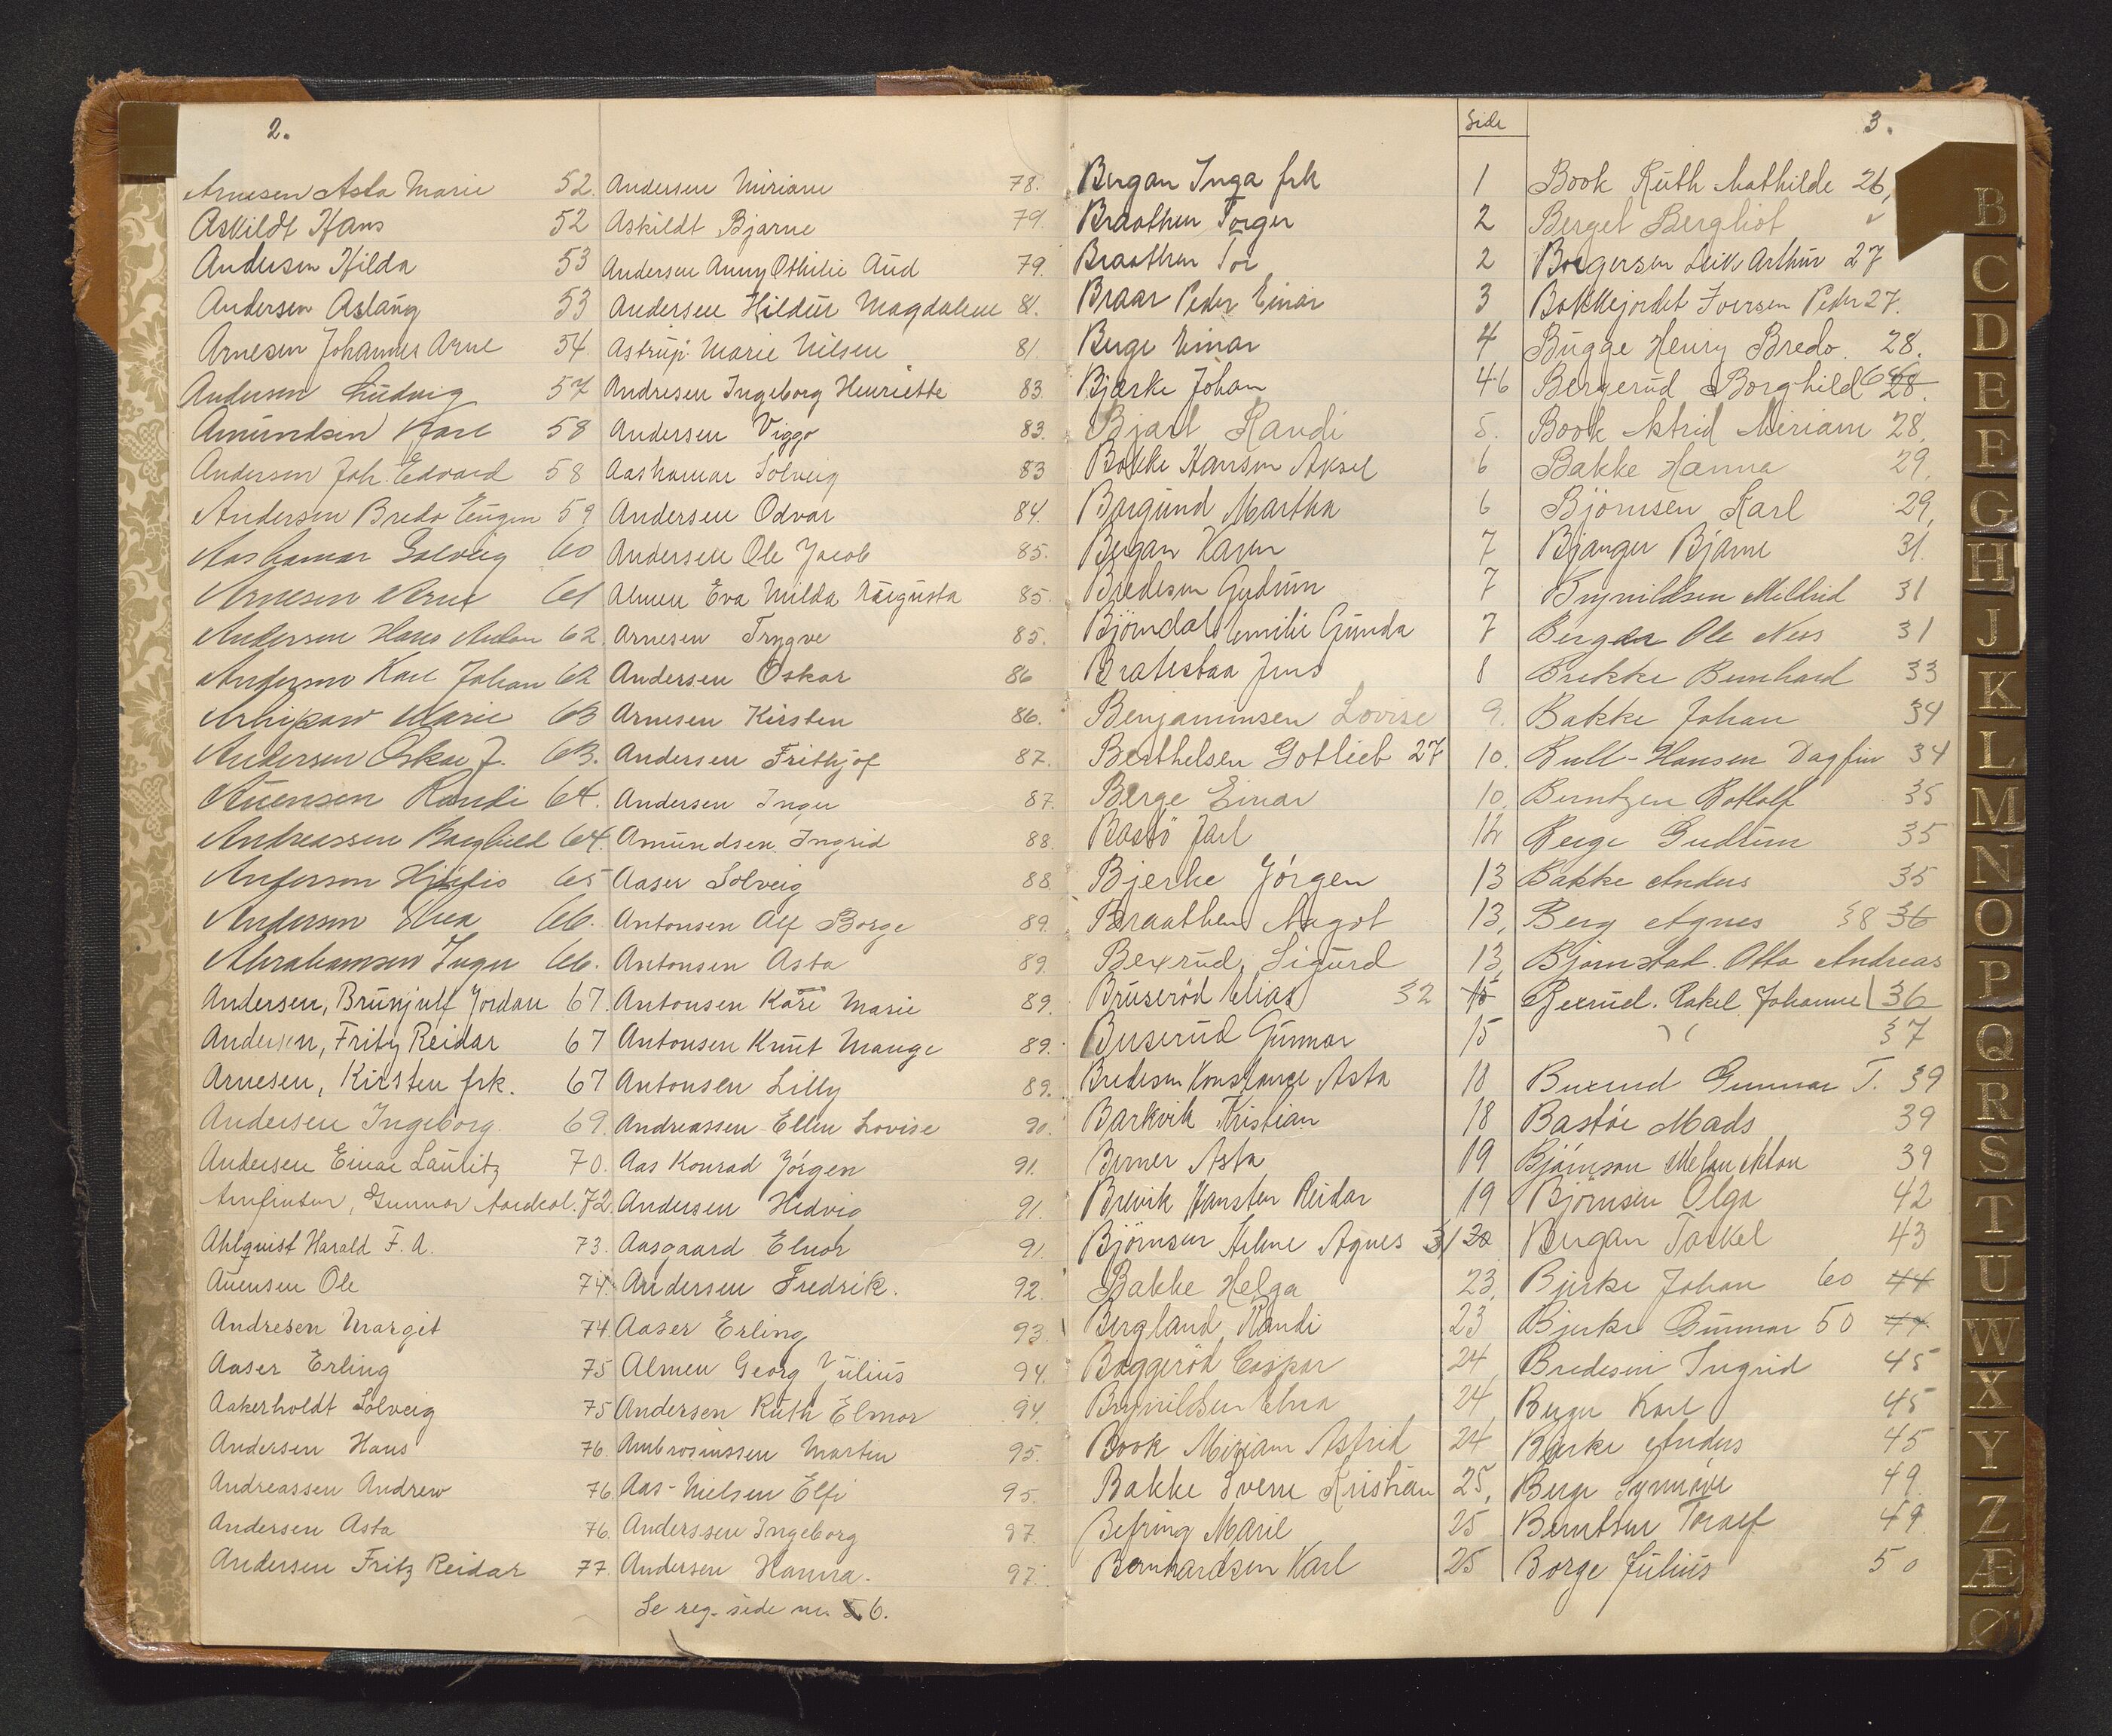 2.
Arnesen Asta Marie 52.
Askildt Hans 52
Andersen Hilda 53
Andersen Aslaug 53
Arnesen Johannes Arne 54.
Andersen Ludvig 57
Amundsen Karl 58
Andersen Joh. Edvard 58
Andersen Bredo Eugen 59
Aashamar Solveig 60
Arnesen Arne 61
Andersen Hans Anton 62.
Andersen Karl Johan 62
Marie 63
Andersen Oskar J. 63.
Auensen Randi 64.
Andreassen Borghild 64.
65
Andersen Thea 66.
Abrahamsen Inger 66.
Andersen, Brynjulf Jordan 67.
Andersen, Fritz Reidar 67
Arnesen, Kirsten frk. 67
Andersen Ingeborg. 69.
Andersen Einar Lauritz 70.
Gunnar 72.
Ahlquist Harald F. A. 73.
Auensen Ole 74.
Andresen Margit 74.
Aaser Erling 75
Aakerholdt Solveig 75
Andersen Hans 76.
Andreassen Andrew 76.
Andersen Asta 76.
Andersen Fritz Reidar 77.
Andersen Miriam 78.
Askildt Bjarne 79.
Andersen Anny Othilie Aud 79.
Andersen Hildur Magdalene 81.
Astrup Marie Nilsen 81.
Andresen Ingeborg Henriette 83.
Andersen Viggo 83.
Aashamar Solveig 83
Andersen Odvar 84.
Andersen Ole Jacob 85.
Almen Eva Milda Augusta 85.
Arnesen Trygve 85.
Andersen Oskar 86
Arnesen Kirsten 86.
Andersen Frithjof 87.
Andersen Inger 87.
Amundsen Ingrid 88.
Aaser Solveig 88.
Antonsen Alf Børge 89.
Antonsen Asta 89.
Antonsen Kåre Marie 89.
Antonsen Knut Mauge 89.
Antonsen Lilly 89.
Andreassen Ellen Lovise 90.
Aas Konrad Jörgen 91.
Andersen Hedvig 91.
Aasgaard Elnor 91.
Andersen Fredrik. 92.
Aaser Erling 93.
Almen Georg Julius 94.
Andersen Ruth Elinor 94.
Ambrosiussen Martin 95.
Aas-Nielsen Elfi 95.
Anderssen Ingeborg 97.
Andersen Hanna. 97.
Se reg. side nr. 5 6.
Side
Bergan Inga frk 1
Braathen Torger 2
Braathen Tor 2
Braar Peder Einar 3
Berge Einar 4
Bjerke Johan 46
Bjart Randi 5.
Bakke Hansen Aksel 6
Borgund Martha 6
Bergan Karen 7
Bredesen Gudrun 7
Björndal Emilie Gunda 7
Bratestaa Jens 8
Benjaminsen Lovise 9.
Berthelsen Gotlieb 27 10.
Berge Einar 10.
Bastö Jarl 12
Bjerke Jörgen 13
Braathen Aagot 13,
Bexrud, Sigurd 13
Bruseröd Elias 32 15
Buserud Gunnar 15
Bredesen Konstance Asta 18
Barkvik Kristian 18
Berner Asta 19
Brevik Karsten Reidar 19
Björnsen Helene Agnes 31 20
Bakke Helga 23
Bergland Randi 23
Baggeröd Caspar 24
Brynildsen Elna 24
Book Miriam Astrid 24
Bakke Sverre Kristian 25,
Befring Marie 25
Bernhardsen Karl 25
3.
Book Ruth Mathilde 26,
Berget Bergliot
Borgersen Leik Arthur 27
Bakkejordet Iversen Peder 27.
Bugge Henry Bredo. 28.
Bergerud Borghild 64 28.
Book Astrid Miriam 28.
Bakke Hanna 29.
Björnsen Karl 29,
Bjanger Bjarne 31.
Brynildsen Mildrid 31
Berg Ole Ness 31
Brekke Bernhard 33
Bakke Johan 34
Bull-Hansen Dagfin 34
Berntzen Botholf 35
Berge Gudrun 35
Bakke Anders 35
Berg Agnes 38 36
Bjørnstad. Otto Andreas
Bexrud. Rakel Johanne 36
37
Buxrud Gunnar T. 39
Bastöe Mads 39
Björnson 39
Björnsen Olga 42
Bergan Torkel 43
Bjerke Johan 60 44
Bjerke Gunnar 50 44
Bredesen Ingrid 45
Berger Karl 45
Bjerke Anders 45
Berge Synnöve 49.
Berntsen Toralf 49.
Borge Julius 50
B
C
D
E
F
G
H
J
K
L
M
N
O
P
Q
R
S
T
U
W
X
Y
Z
Æ
Ø